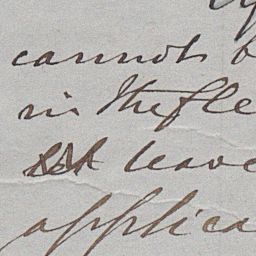 cannot b
in the fle
leave
applica